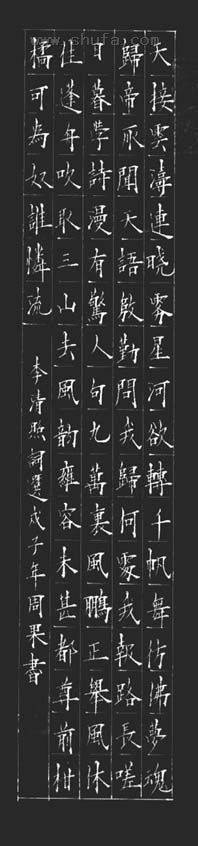 www.shufa.com
天接雲濤連曉霧星河欲轉千帆舞彷佛夢魂
歸帝所聞天語殷勤問我歸何處我報路長嗟
日暮學詩漫有驚人句九萬裏風鵬正舉風休
住蓬舟吹取三山去風韻雍容未甚都尊前柑
橘可為奴誰憐流
李清照詞選戊子年周果書